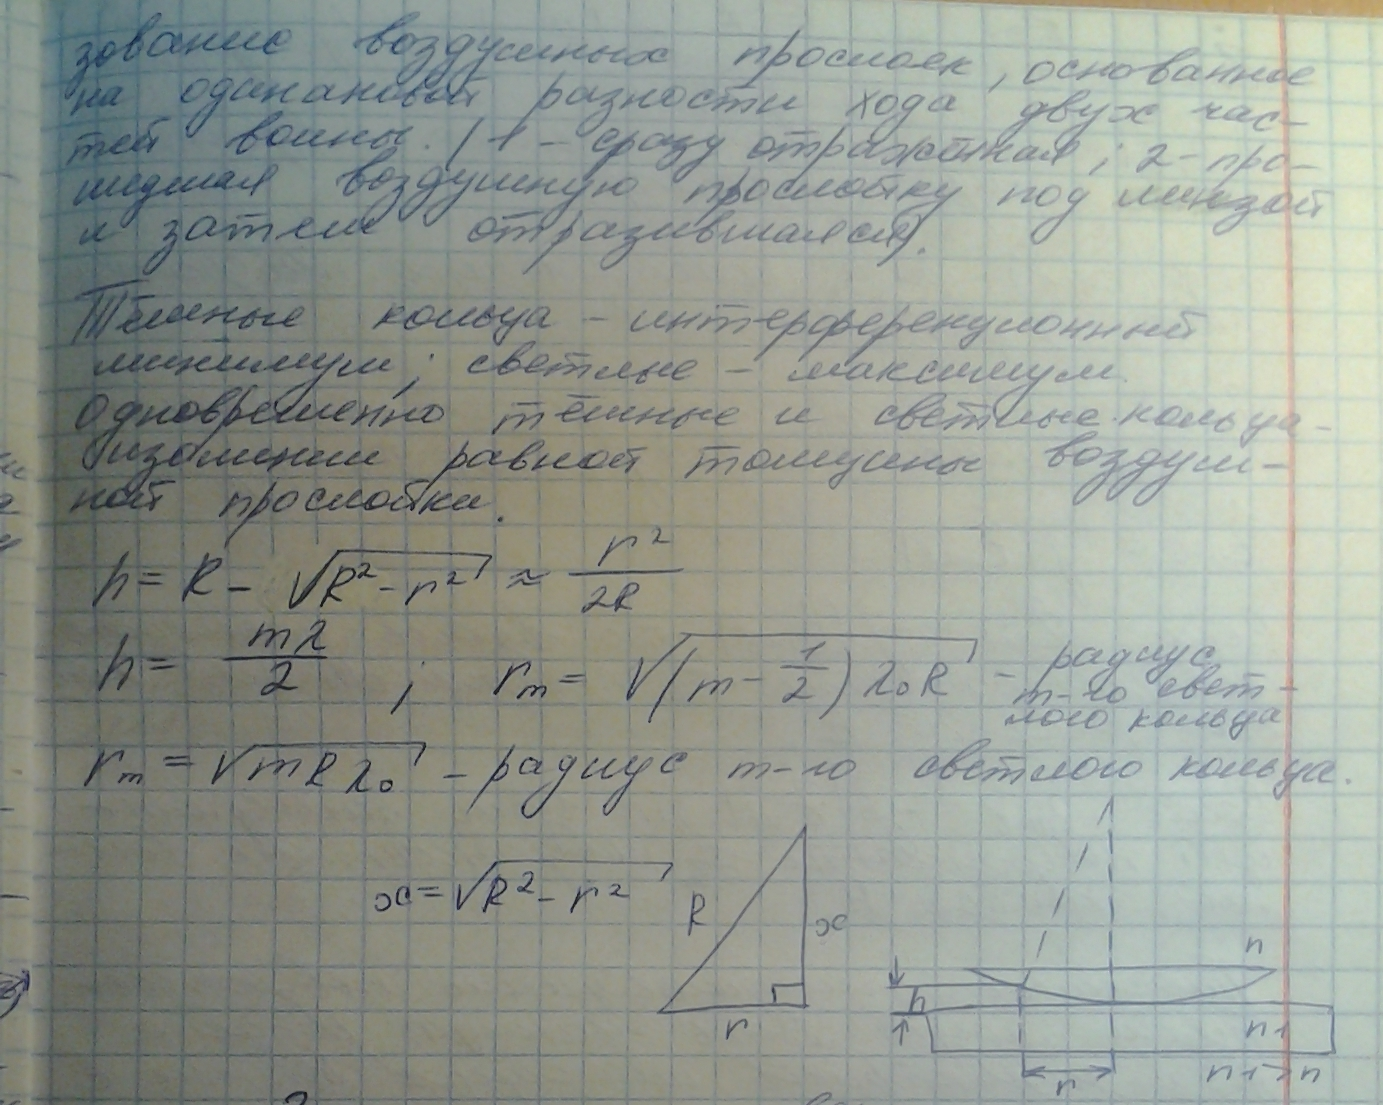 зование воздушных прослоек, основанное
на одинаковой разности хода двух час-
тей волны. (1 - сразу отражённая; 2 - про-
шедшая воздушную прослойку под линзой
и затем отразившаяся).
Тёмные кольца - интерференционный
минимум; светлые - максимум.
Одновременно тёмные и светлые кольца -
изолинии равной толщины воздуш-
ной прослойки.
h = R - √(R² - r²) ≈ r²/2R
h = mλ/2 ; rₘ = √((m - 1/2)λ₀R) - радиус
m-го свет-
лого кольца
rₘ = √(mRλ₀) - радиус m-го светлого кольца.
x = √(R² - r²)
R
x
r
n
h
n1
r
n1 > n